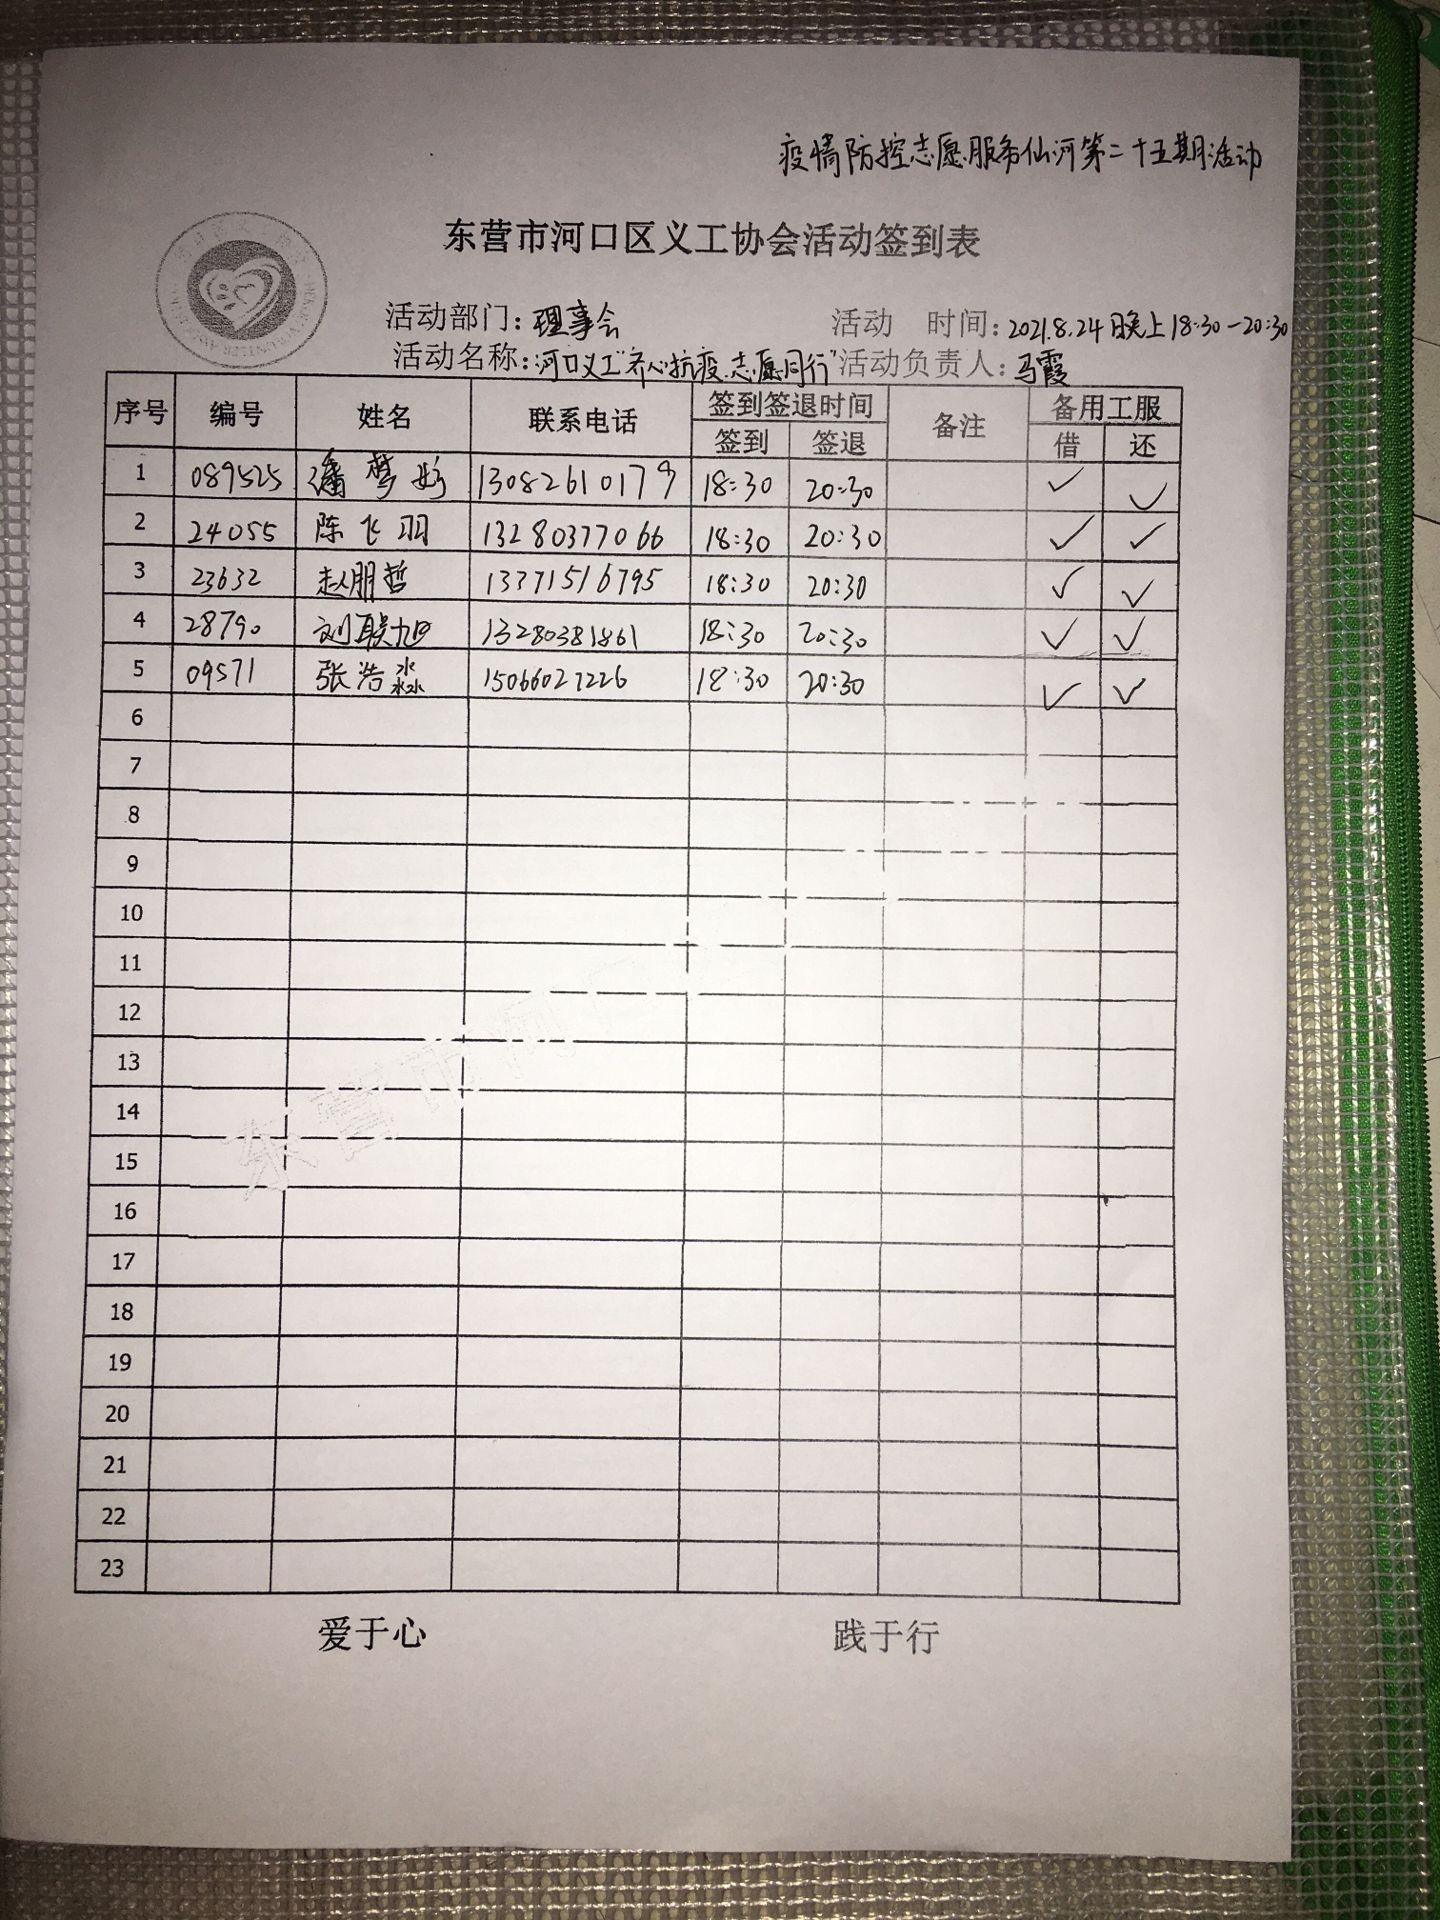 疫情防控志愿服务仙河第二十五期活动
东营市河口区义工协会活动签到表
活动部门：理事会 活动 时间：2021.8.24日晚上18:30-20:30
活动名称：河口义工"齐心抗疫.志愿同行" 活动负责人：马霞
序号 编号 姓名 联系电话 签到签退时间 备注 备用工服
签到 签退 借 还
1 089525 潘梦 18:30 20:30 ✓ ✓
2 24055 陈飞羽 13280377066 18:30 20:30 ✓ ✓
3 23632 赵朋哲 13371516795 18:30 20:30 ✓ ✓
4 28790 刘联旭 13280381861 18:30 20:30 ✓ ✓
5 09571 张浩淼 15066027226 18:30 20:30 ✓ ✓
6
7
8
9
10
11
12
13
14
15
16
17
18
19
20
21
22
23
东营市河
爱于心 践于行